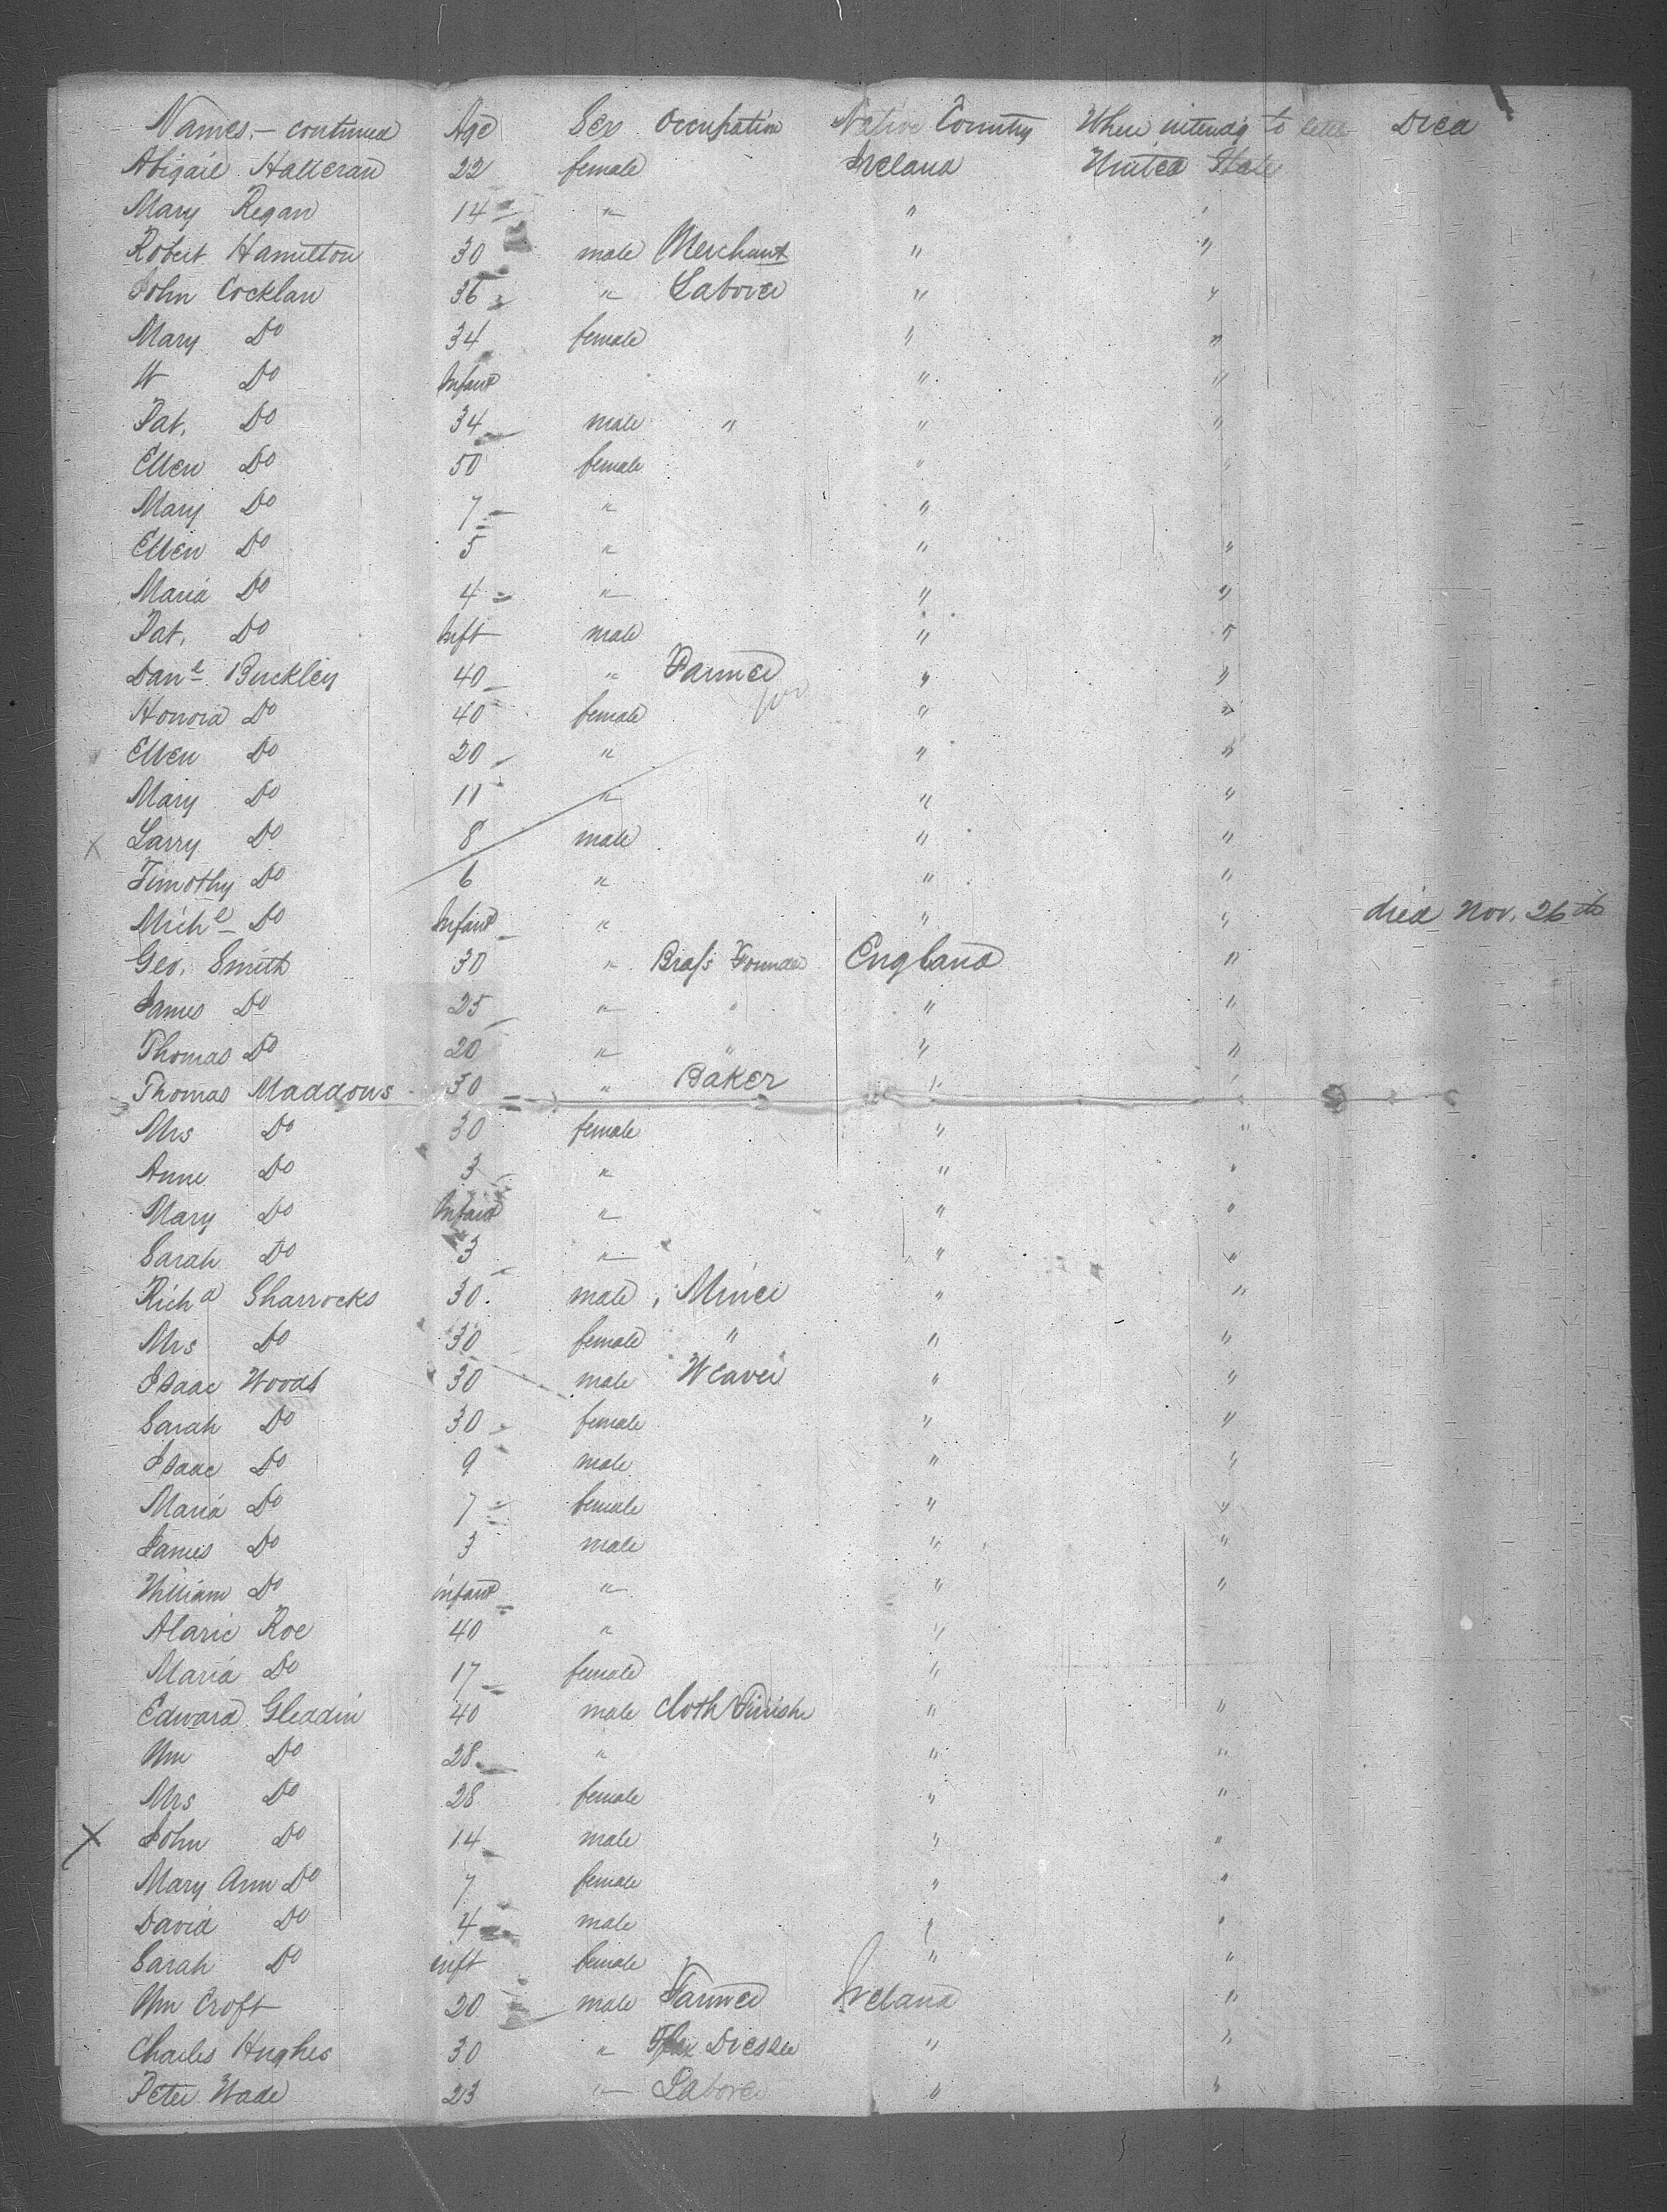 Names,- continued Age Sex Occupation Native Country Where intend'g to settle Died
Abigail Halleran 22 female Ireland United State
Mary Regan 14 " " "
Robert Hamilton 30 male Merchant " "
John Cocklan 36 " Laborer " "
Mary Do 34 female " "
W Do Infant " "
Pat. Do 34 male " " "
Ellen Do 50 female " "
Mary Do 7 " " "
Ellen Do 5 " " "
Maria Do 4 " " "
Pat. Do Inft male " "
Danl Buckley 40 " Farmer " "
Honora Do 40 female " "
Ellen Do 20 " " "
Mary Do 11 " " "
Larry Do 8 male " "
Timothy Do 6 " " "
Michl Do Infant " " " died Nov. 26th
Geo. Smith 30 " Brass Founder England "
James Do 25 " " " "
Thomas Do 20 " " " "
Thomas Maddous 30 " Baker " "
Mrs Do 30 female " "
Anne Do 3 " " "
Mary Do Infant " " "
Sarah Do 3 " " "
Richd Sharrocks 30 male Miner " "
Mrs Do 30 female " " "
Isaac Woods 30 male Weaver " "
Sarah Do 30 female " "
Isaac Do 9 male " "
Maria Do 7 female " "
James Do 3 male " "
William Do infant " " "
Alaric Roe 40 " "
Maria Do 17 female "
Edward Gleadin 40 male Cloth Finishr " "
Wm Do 28 " " "
Mrs Do 28 female " "
X John Do 14 male " "
Mary Ann Do 7 female " "
David Do 4 male " "
Sarah Do inft female " "
Wm Croft 20 male Farmer Ireland "
Charles Hughes 30 " Flax Dresser " "
Peter Wade 23 " Laborer " "